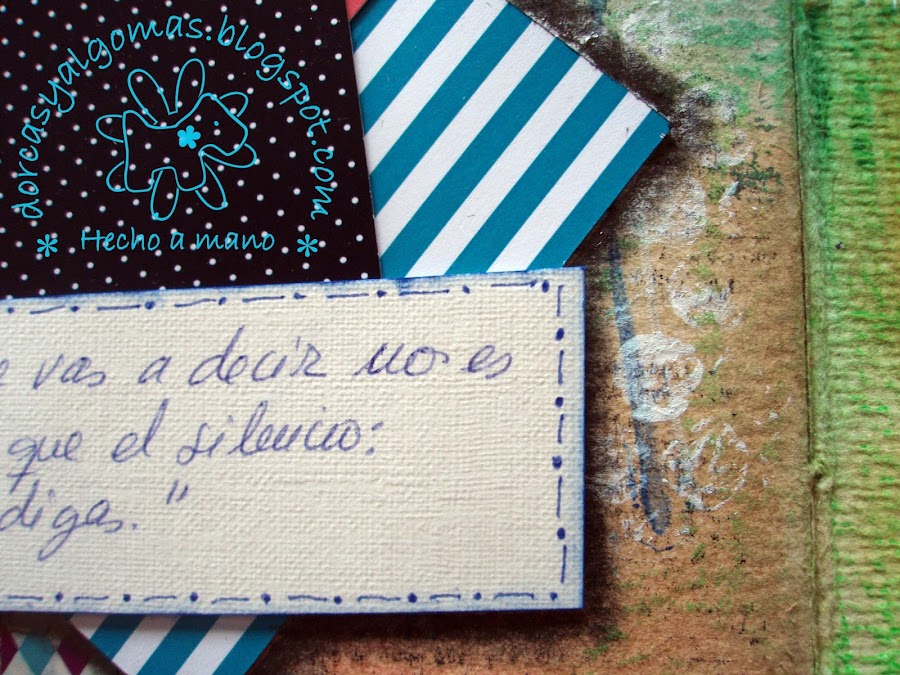 dorcasyalgomas.blogspot.com
* Hecho a mano *
vas a decir no es
que el silencio:
digas."